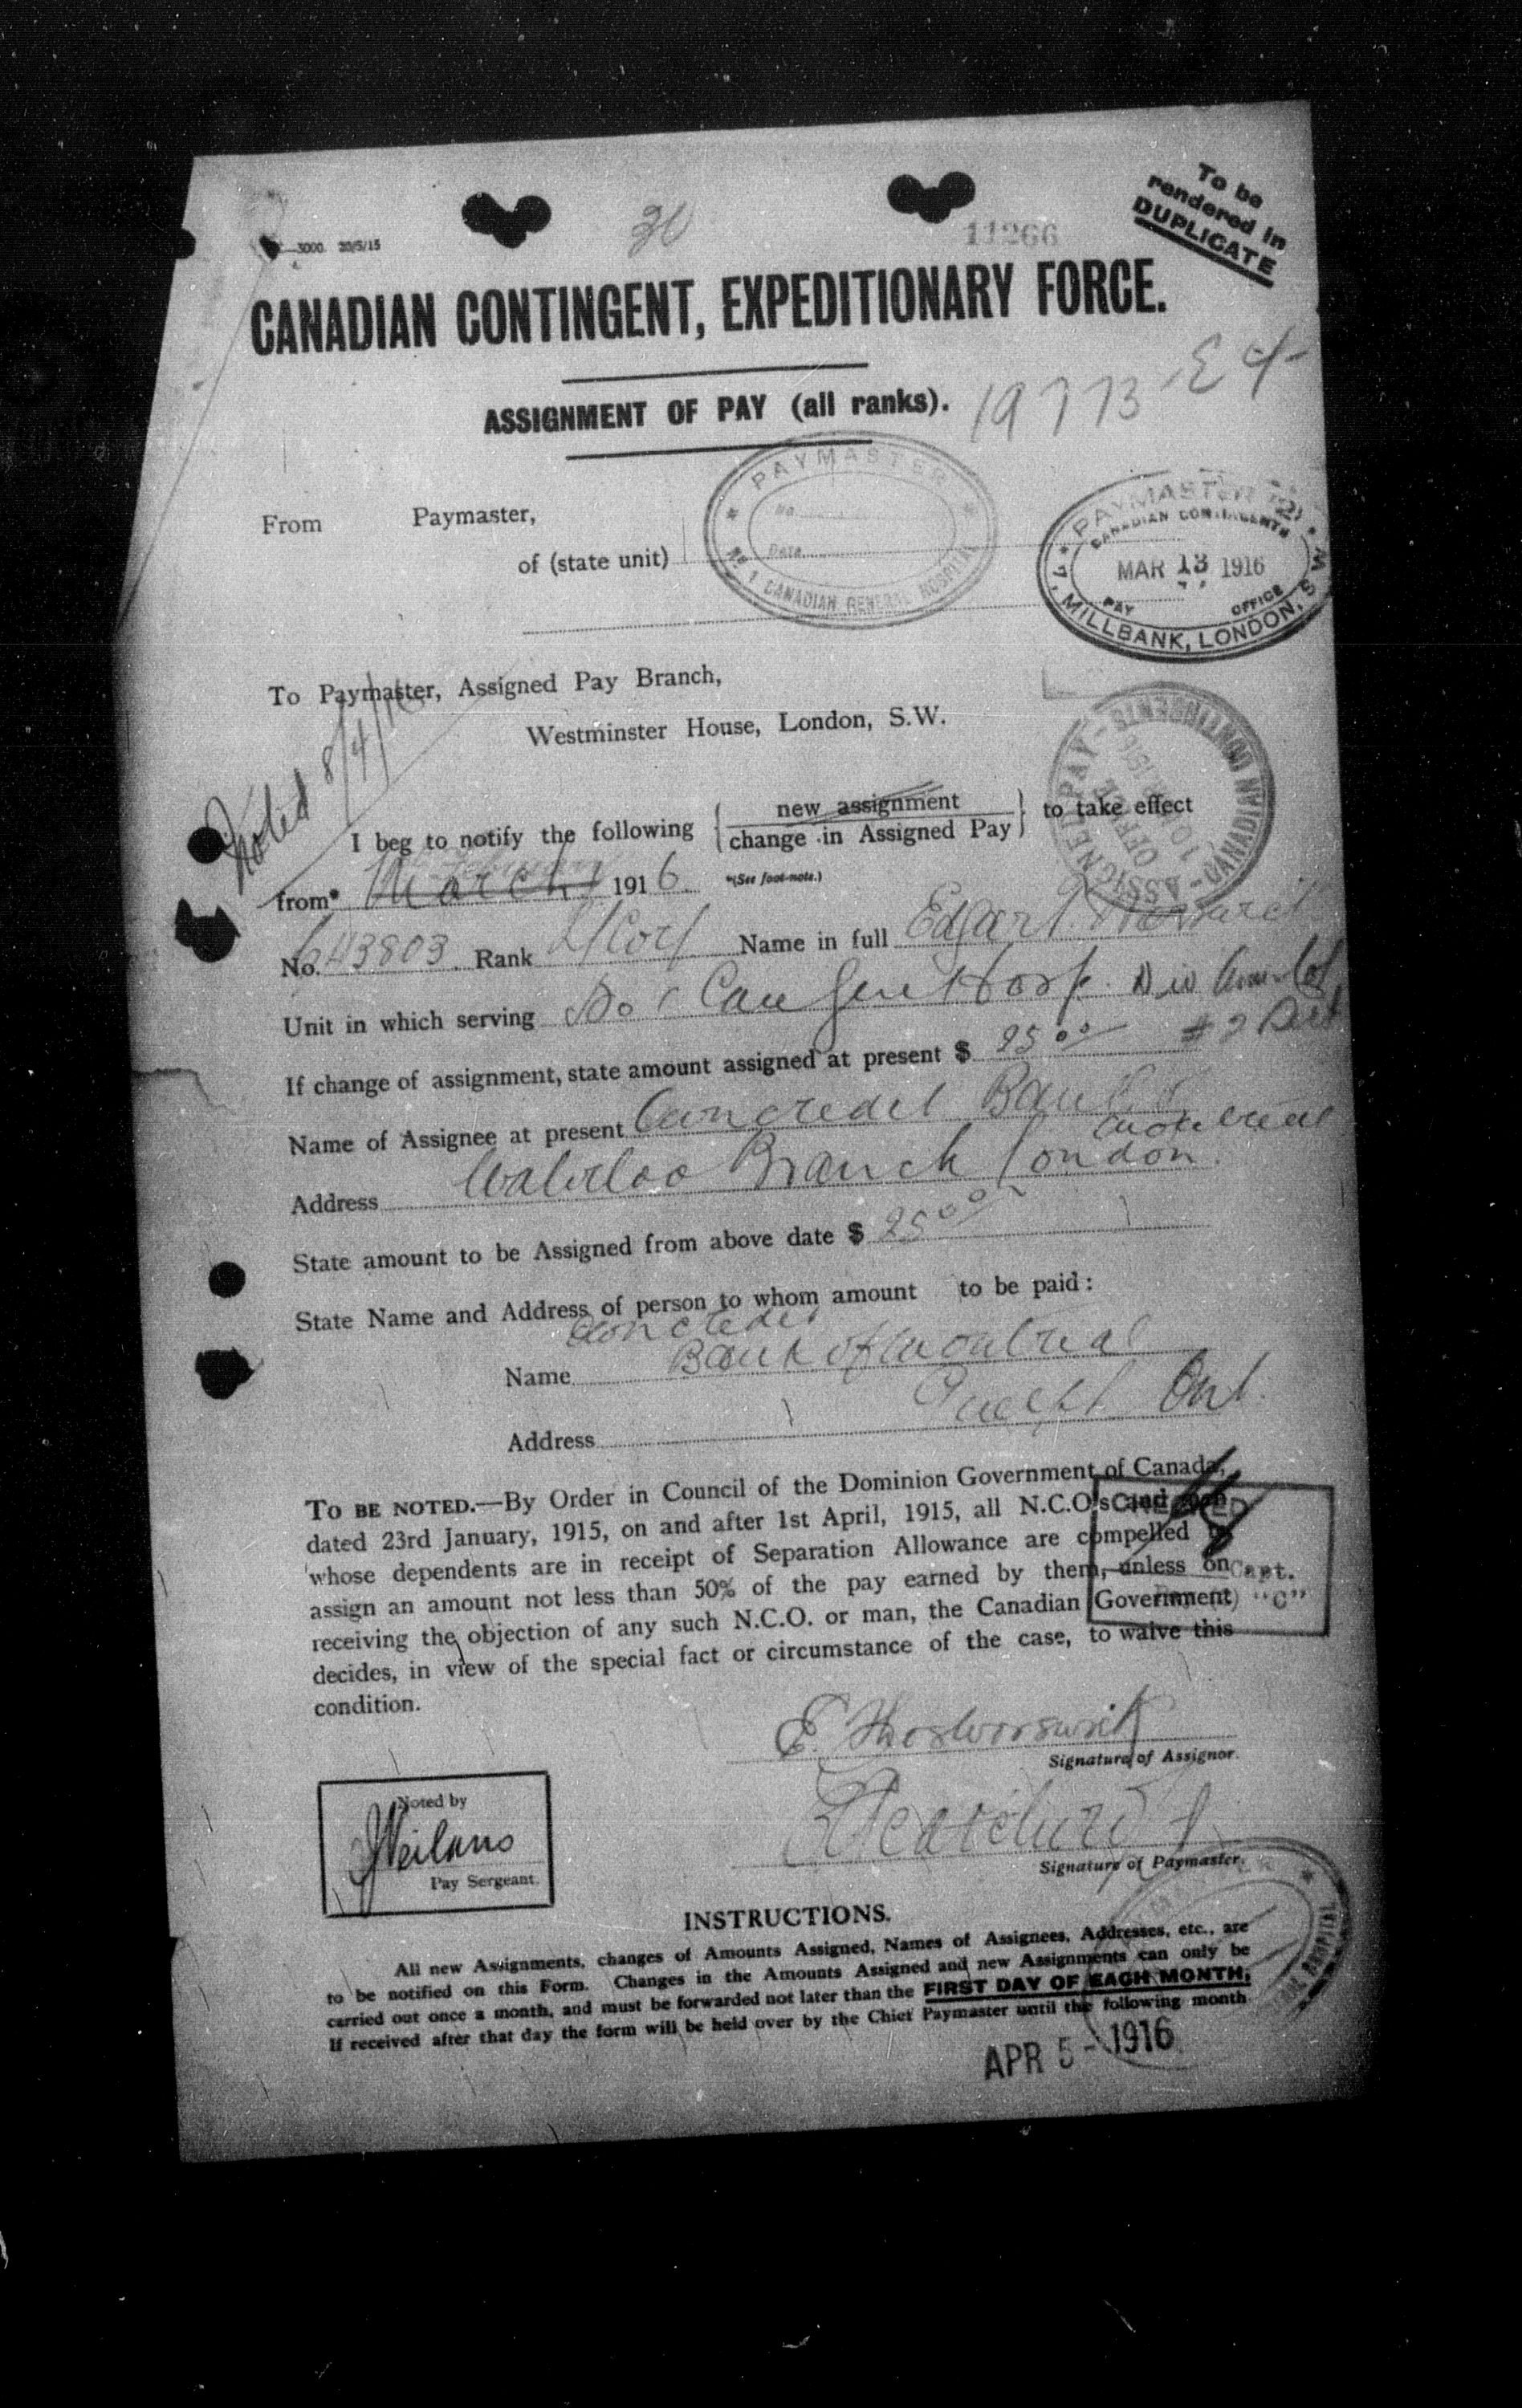 To be
rendered in
DUPLICATE
3000. 20/5/15
30
11266
CANADIAN CONTINGENT, EXPEDITIONARY FORCE.
ASSIGNMENT OF PAY (all ranks).
19773
PAYMASTER
No.
Date
No. 1 CANADIAN GENERAL HOSPITAL
From Paymaster,
of (state unit)
PAYMASTER (2)
CANADIAN CONTINGENTS
MAR 13 1916
PAY OFFICE
7, MILLBANK, LONDON, S.W.
To Paymaster, Assigned Pay Branch,
Westminster House, London, S.W.
CANADIAN CONTINGENTS
ASSIGNED PAY
OFFICE
Noted 8/4/16
I beg to notify the following { new assignment to take effect
change in Assigned Pay }
from* March 1916. *(See foot-note.)
No. 43803. Rank L/Corp Name in full Edgar
Unit in which serving No 1 Can Gen Hosp.
If change of assignment, state amount assigned at present $ 25.00
Name of Assignee at present Bank of
Montreal
Address Waterloo Branch London.
State amount to be Assigned from above date $ 25.00
State Name and Address of person to whom amount to be paid:
Name Bank of Montreal
Address Guelph Ont.
TO BE NOTED.—By Order in Council of the Dominion Government of Canada,
dated 23rd January, 1915, on and after 1st April, 1915, all N.C.O's and men
whose dependents are in receipt of Separation Allowance are compelled to
assign an amount not less than 50% of the pay earned by them, unless on
receiving the objection of any such N.C.O. or man, the Canadian Government
decides, in view of the special fact or circumstance of the case, to waive this
condition.
CHECKED
Capt.
"C"
E.
Signature of Assignor.
Signature of Paymaster.
Noted by
Pay Sergeant.
INSTRUCTIONS.
All new Assignments, changes of Amounts Assigned, Names of Assignees, Addresses, etc., are
to be notified on this Form. Changes in the Amounts Assigned and new Assignments can only be
carried out once a month, and must be forwarded not later than the FIRST DAY OF EACH MONTH,
If received after that day the form will be held over by the Chief Paymaster until the following month
APR 5 - 1916